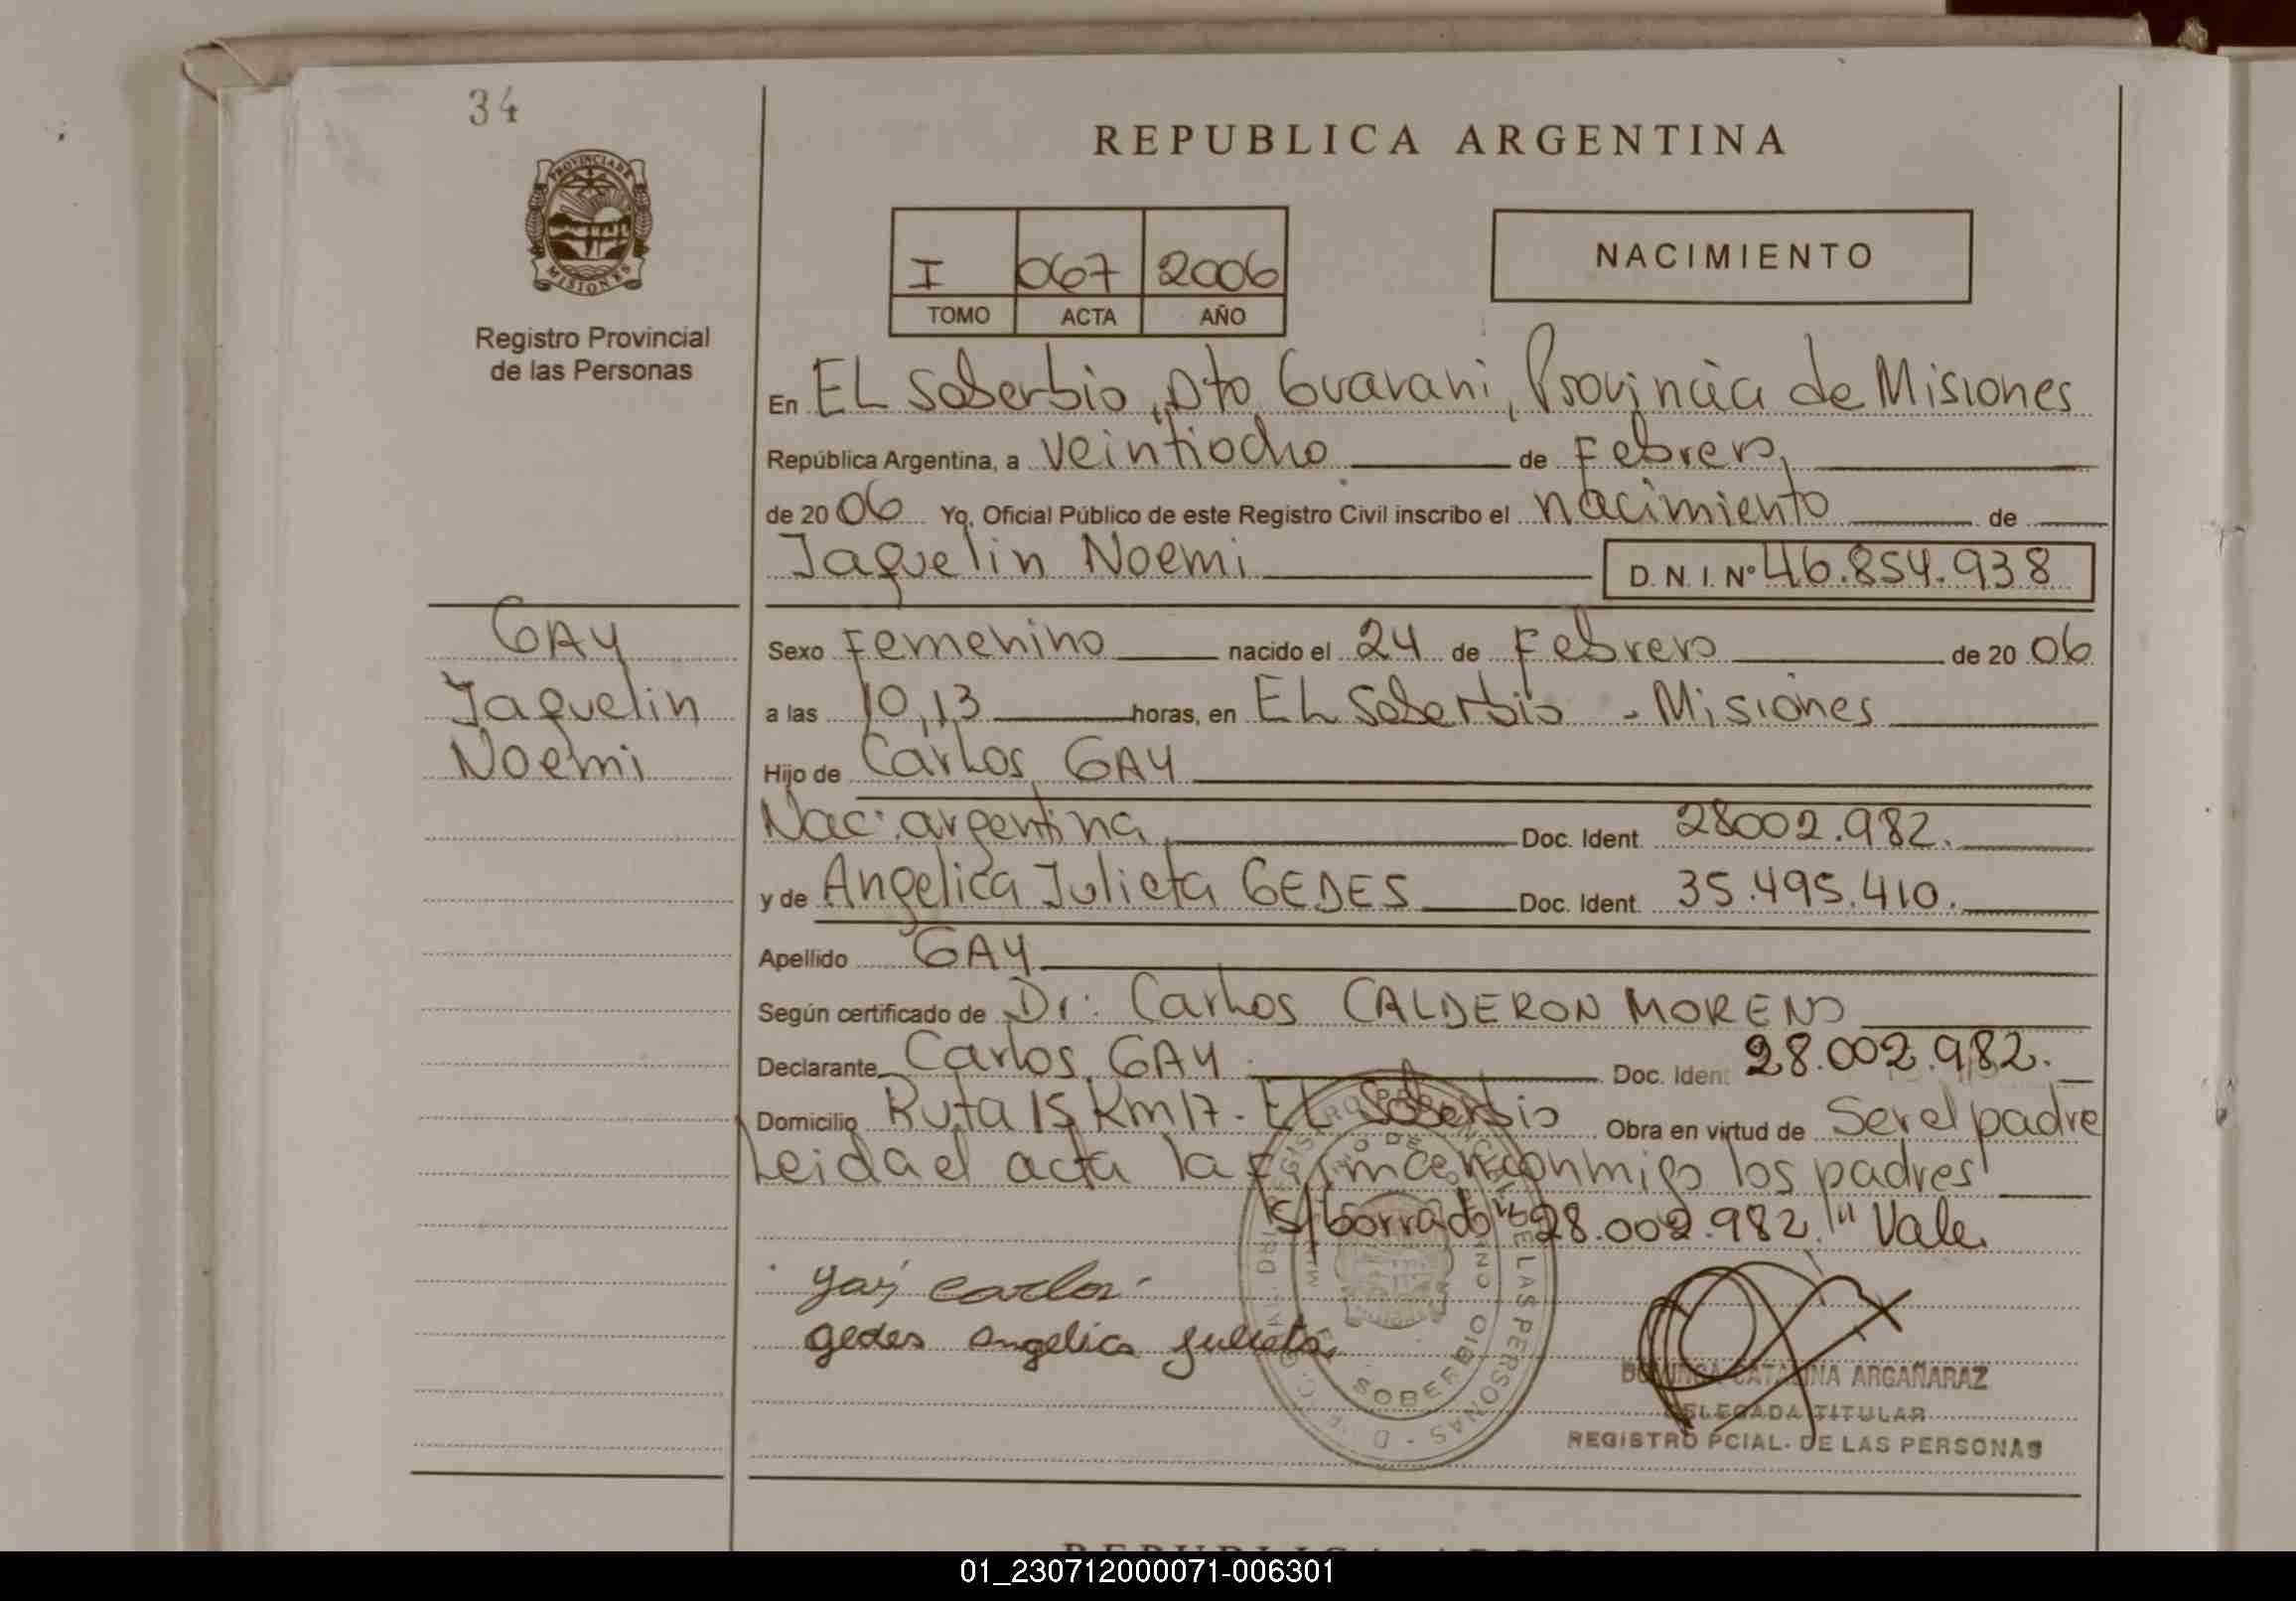 34
REPUBLICA ARGENTINA
PROVINCIA DE MISIONES
Registro Provincial
de las Personas
I 067 2006
TOMO ACTA AÑO
NACIMIENTO
En EL Soberbio, Dto Guarani, Provincia de Misiones
República Argentina, a veintiocho de Febrero,
de 2006 Yo, Oficial Público de este Registro Civil inscribo el nacimiento de
Jaquelin Noemi D. N. I. Nº 46.854.938
GAY
Jaquelin
Noemi
Sexo Femenino nacido el 24 de Febrero de 2006
a las 10,13 horas, en EL Soberbio - Misiones
Hijo de Carlos GAY
Nac: argentina Doc. Ident. 28002.982.
y de Angelica Julieta GEDES Doc. Ident. 35.495.410.
Apellido GAY
Según certificado de Dr. Carlos CALDERON MORENO
Declarante Carlos GAY Doc. Ident 28.002.982.
Domicilio Ruta 15 Km 17 - EL Soberbio Obra en virtud de Ser el padre
Leida el acta la firman conmigo los padres
S/borrado "28.002.982." Vale.
Gay carlos
gedes angelica julieta
SOBERBIO
DE LAS PERSONAS
CATALINA ARGAÑARAZ
DELEGADA TITULAR
REGISTRO PCIAL. DE LAS PERSONAS
01_230712000071-006301